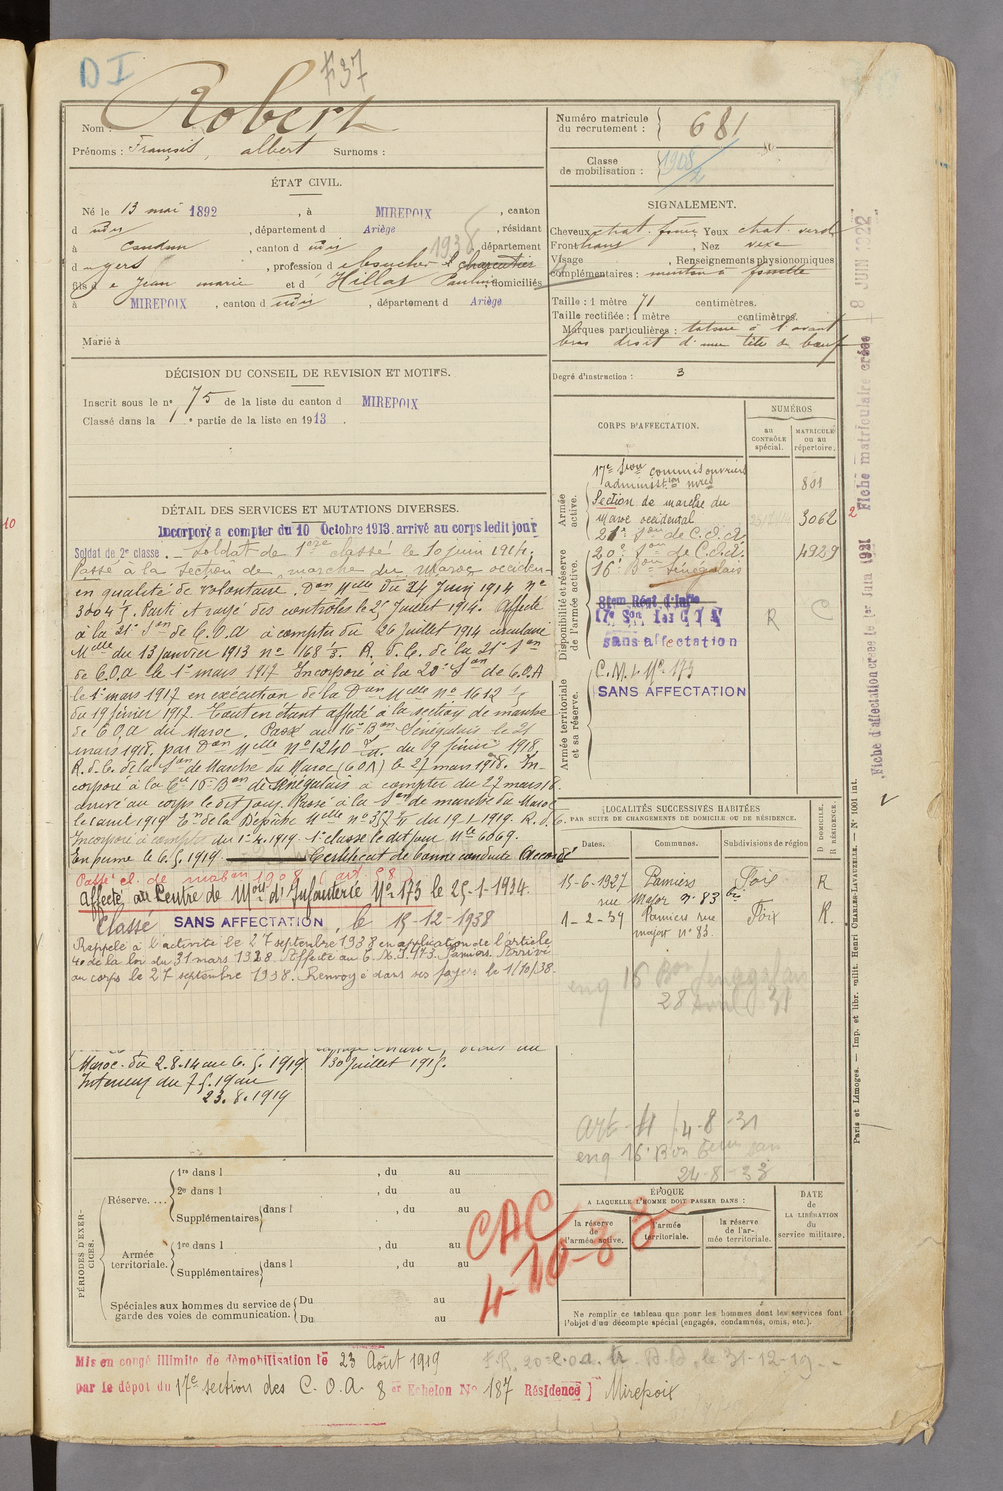 DI
F37
Nom : Robert
Prénoms : François, albert Surnoms :
ÉTAT CIVIL.
Né le 13 mai 1892, à MIREPOIX, canton
d udit, département d Ariège, résidant
à Caudun, canton d udit, département
d u gers, profession d e boucher charcutier
1938
fils d e Jean marie et d Hillat Pauline domiciliés
à MIREPOIX, canton d udit, département d Ariège
Marié à
DÉCISION DU CONSEIL DE REVISION ET MOTIFS.
Inscrit sous le no 75 de la liste du canton d MIREPOIX
Classé dans la 1e partie de la liste en 1913.
DÉTAIL DES SERVICES ET MUTATIONS DIVERSES.
Incorporé a compter du 10 Octobre 1913. arrivé au corps ledit jour
Soldat de 2e classe. - Soldat de 1ère classe le 10 juin 1914.
Passé à la Section de marche du Maroc occiden-
en qualité de volontaire. Don Melle du 24 Juin 1914 no
3004 7/5. Parti et rayé des contrôles le 25 Juillet 1914. Affecté
à la 21e Son de C.O.A à compter du 26 Juillet 1914 circulaire
Melle du 13 janvier 1913 no 168 5/5. R. d. C. de la 21e Son
de C.O.A le 1er mars 1917 Incorporé à la 20e Son de C.O.A
le 1er mars 1917 en exécution de la Don Melle no 1612 5/5
du 19 février 1917. Tout en étant affecté à la section de marche
de C.O.A du Maroc. Passé au 16e Bon Sénégalais le 21
mars 1918, par Don Melle No 1240 du 9 février 1918.
R. d. C. de la Son de Marche du Maroc (C.O.A) le 27 mars 1918. In-
corporé à la Cie 16e Bon de Sénégalais à compter du 27 mars 18
arrivé au corps le dit jour. Passé à la Son de marche du Maroc
le 1er avril 1919 En de la Dépêche Melle no 357 du 19.1.1919. R. d. C.
Incorporé à compter du 1er.4.1919. 1e classe le dit jour No 6069.
En prime le 6.5.1919. Certificat de bonne conduite Accordé
Passé cl. de mobon 1908 (art 58)
Affecté au Centre de Mon d'Infanterie No 173 le 25-1-1934.
Classé SANS AFFECTATION, le 15-12-1938
Rappelé à l'activité le 27 septembre 1938 en application de l'article
40 de la loi du 31 mars 1928. Affecté au C.M.I. 173. Pamiers. Arrivé
au corps le 27 septembre 1938. Renvoyé dans ses foyers le 1/10/38.
Maroc. du 2.8.14 au 6.5.1919
Intérieur du 7.5.19 au
23.8.1919
30 juillet 1915.
PÉRIODES D'EXER-
CICES.
Réserve....
1re dans l , du au
2e dans l , du au
Supplémentaires dans l , du au
Armée
territoriale.
1re dans l , du au
Supplémentaires dans l , du au
Spéciales aux hommes du service de
garde des voies de communication.
Du au
Du au
Mis en congé illimité de démobilisation le 23 Août 1919
par le dépôt du 17e section des C.O.A. 8er Echelon No 187 Résidence] Mirepoix
Numéro matricule
du recrutement : 681
Classe
de mobilisation : 1908/2
SIGNALEMENT.
Cheveux chat. foncé Yeux chat. verd
Front haut, Nez vexe
Visage , Renseignements physionomiques
complémentaires : menton à fossette
Taille : 1 mètre 71 centimètres.
Taille rectifiée : 1 mètre centimètres.
Marques particulières : tatoué à l'avant
bras droit d'une tête de bœuf
Degré d'instruction : 3
CORPS D'AFFECTATION.
NUMÉROS
au
CONTRÔLE
spécial.
MATRICULE
ou au
répertoire.
Armée
active.
17e Son commis ouvriers
administon mres 801
Section de marche du
Maroc occidental 3062
21e Son de C.O.A.
Disponibilité et réserve
de l'armée active.
20e Son de C.O.A. 4929
16e Bon Sénégalais
R C
sans affectation
Armée territoriale
et sa réserve.
C.M.I. No 173
SANS AFFECTATION
LOCALITÉS SUCCESSIVES HABITÉES
PAR SUITE DE CHANGEMENTS DE DOMICILE OU DE RÉSIDENCE.
Dates. Communes. Subdivisions de région
D DOMICILE.
R RÉSIDENCE.
15-6-1927 Pamiers Foix R
rue Major no 83 bis
1-2-34 Pamiers rue Foix R.
major no 83
eng 16 Bon Senegalais
28 31
art-4 14-8-31
eng 16e Bon
24-8-33
CAC
4-10-33
ÉPOQUE
A LAQUELLE L'HOMME DOIT PASSER DANS :
la réserve
de
l'armée active.
l'armée
territoriale.
la réserve
de l'ar-
mée territoriale.
DATE
de
LA LIBÉRATION
du
service militaire.
Ne remplir ce tableau que pour les hommes dont les services font
l'objet d'un décompte spécial (engagés, condamnés, omis, etc.).
Fiche d'affectation créée le 1er Juin 1921 Fiche matriculaire créée 8 JUIN 1922
Paris et Limoges. — Imp. et libr. milit. Henri CHARLES-LAVAUZELLE. — No 1001 int.
10
2